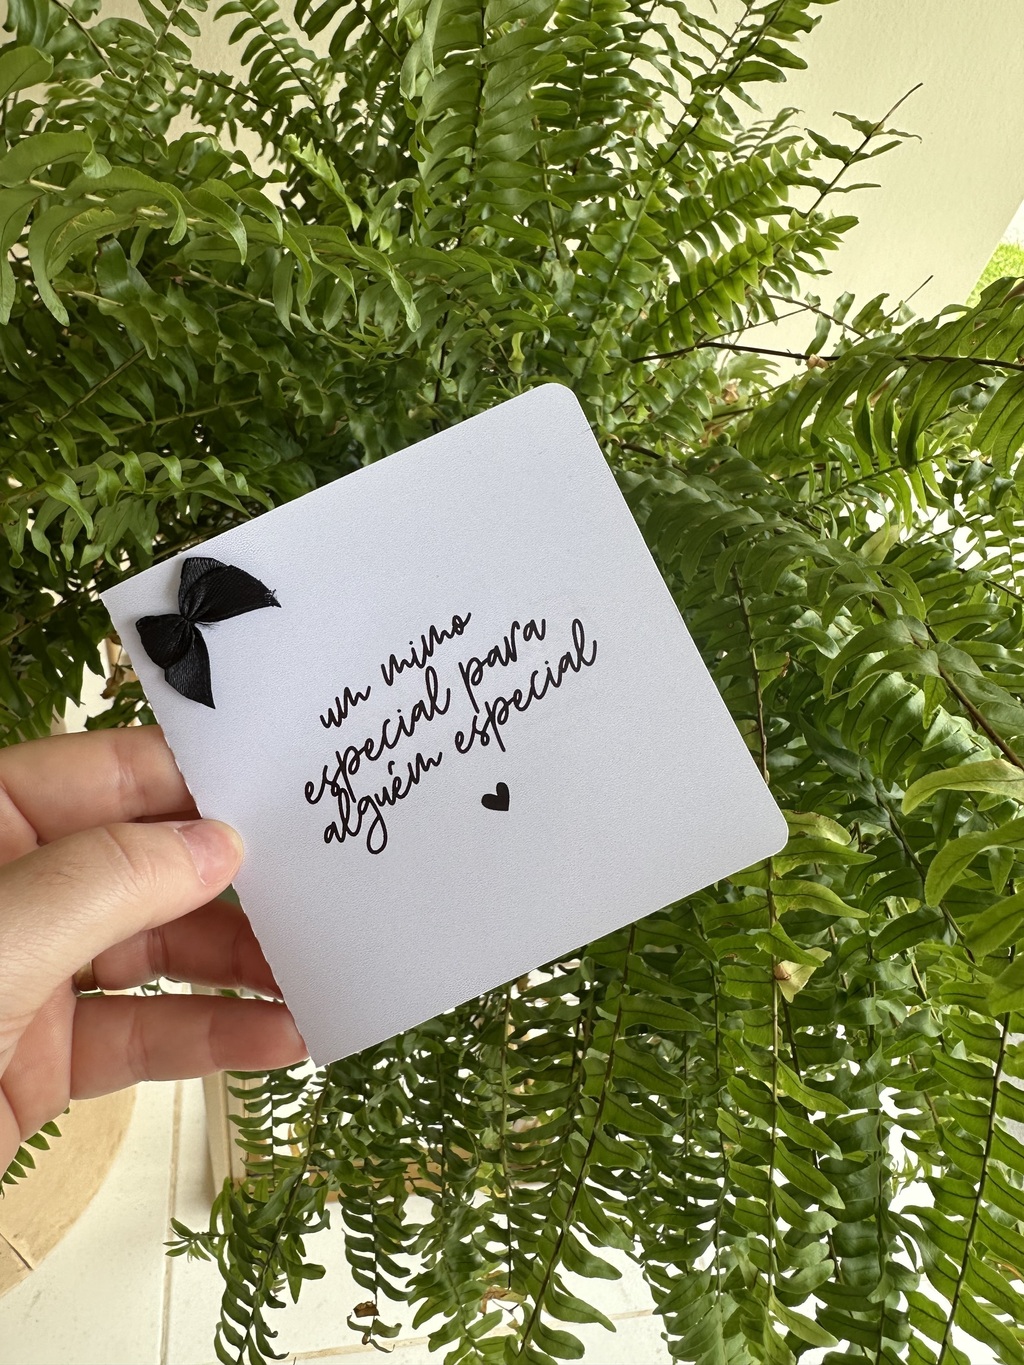 um mimo
especial para
alguém especial